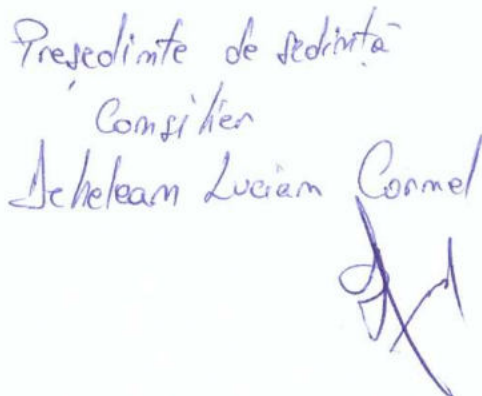 Președinte de sedință
Consilier
Dehelean Lucian Cornel